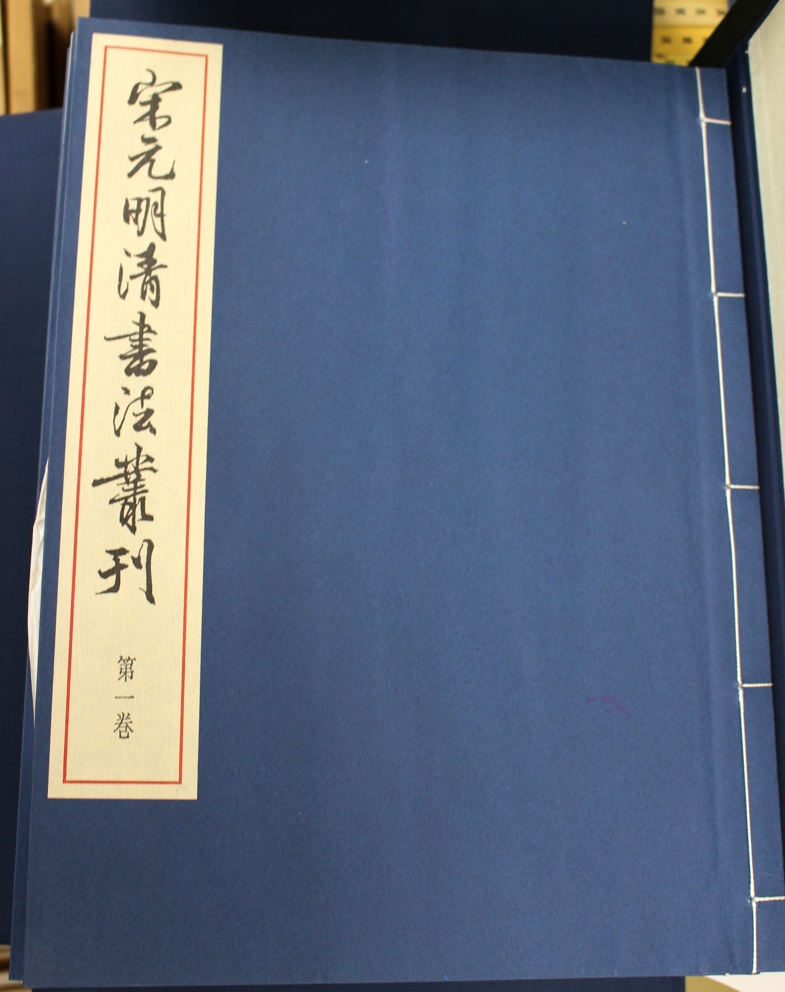 宋元明清書法叢刊
第一巻